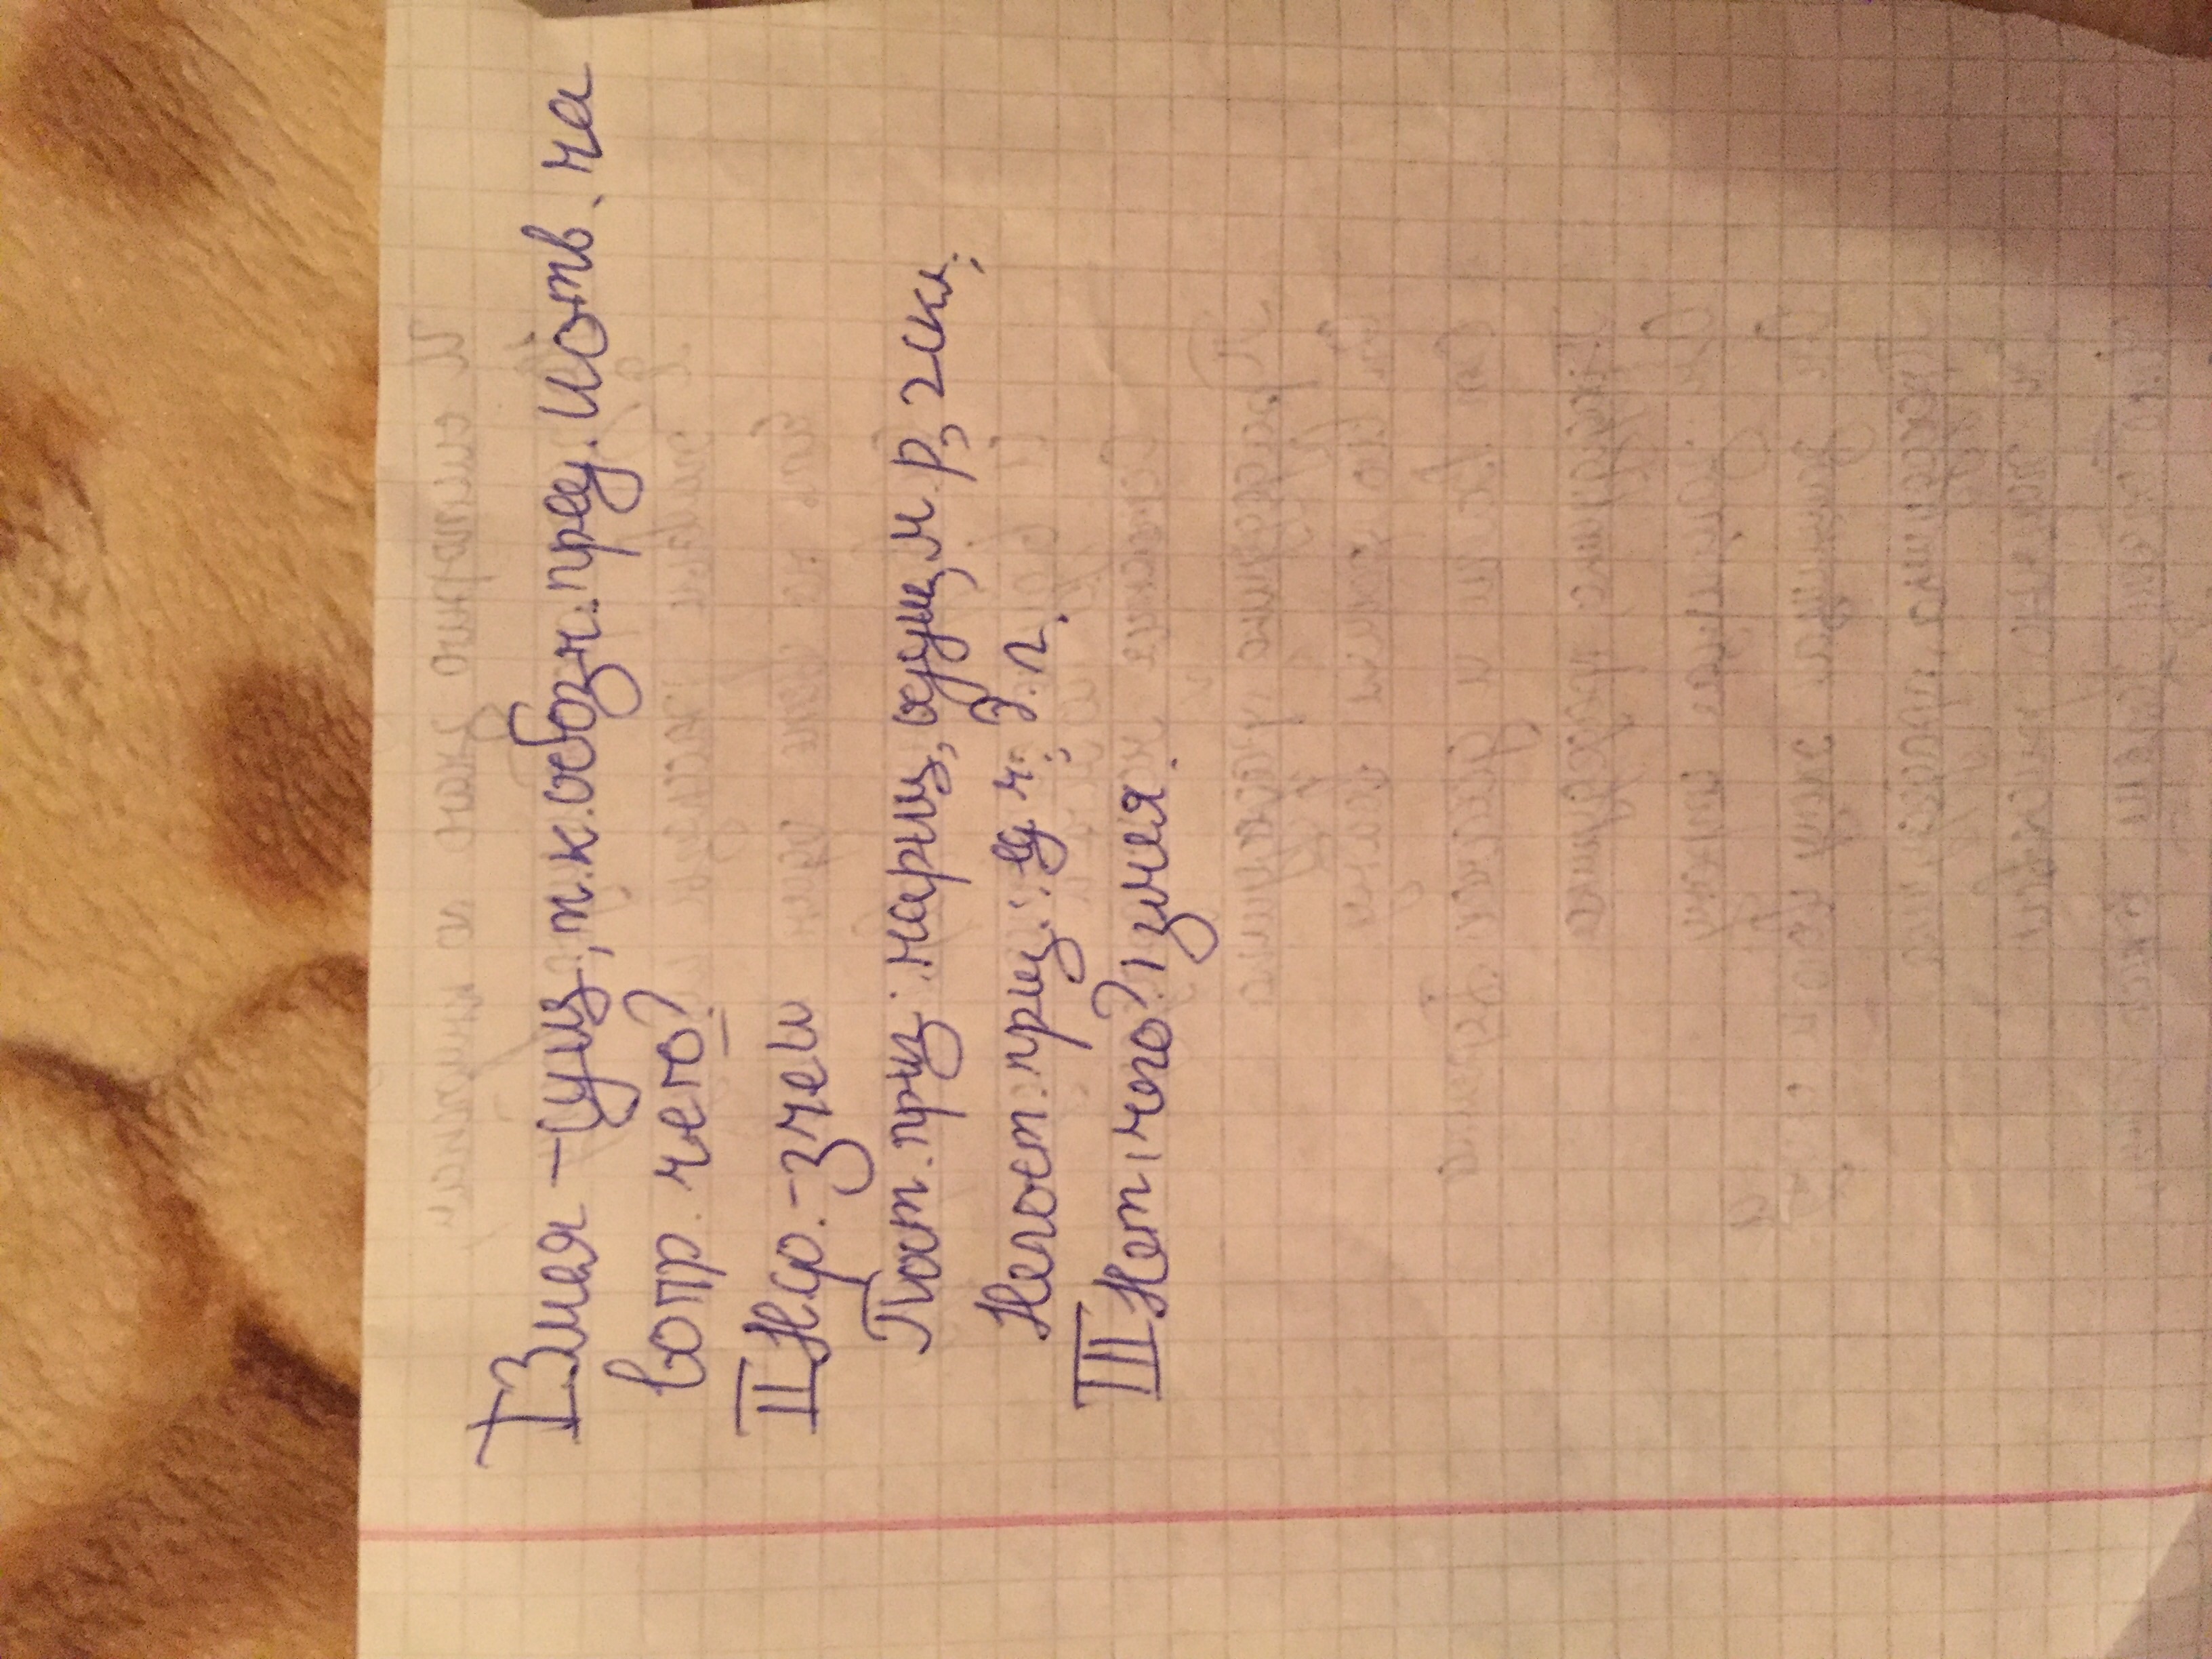 I Змея – сущ, т.к. обозн. пред. и отв. на
вопр. чего?
II Н.ф. - змеи
Пост. приз: нариц, одуш, м. р, 2 скл;
Непост. приз.: ед. ч.;
III Нет (чего?) змея.